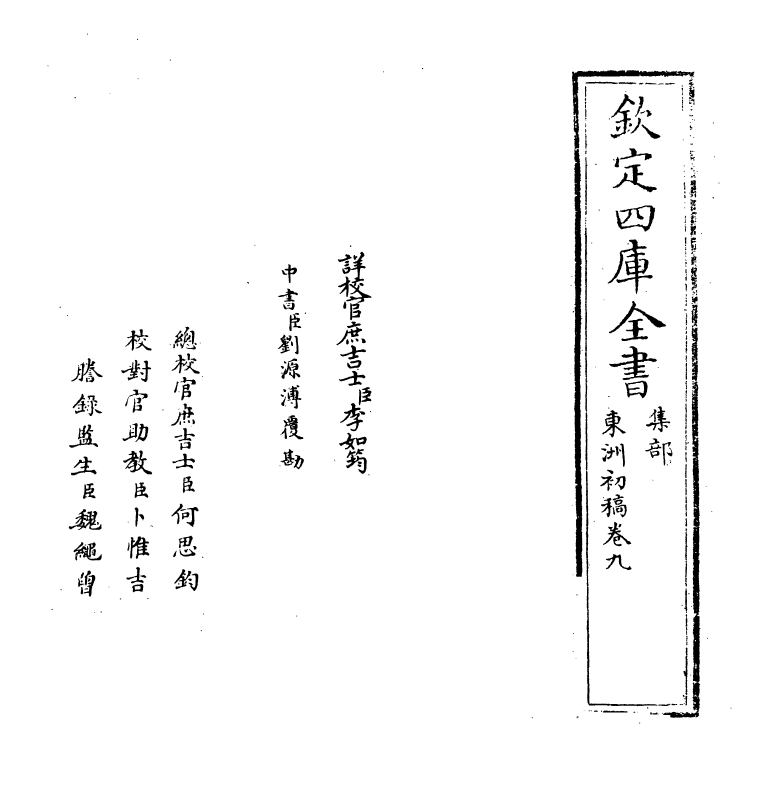 欽定四庫全書
集部
東洲初稿卷九
詳校官庶吉士臣李如筠
中書臣劉源溥覆勘
總校官庶吉士臣何思鈞
校對官助教臣卜惟吉
謄錄監生臣魏繩曾